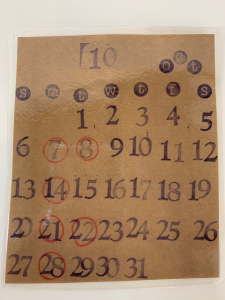 10
Oct
s m t w t f s
1 2 3 4 5
6 7 8 9 10 11 12
13 14 15 16 17 18 19
20 21 22 23 24 25 26
27 28 29 30 31